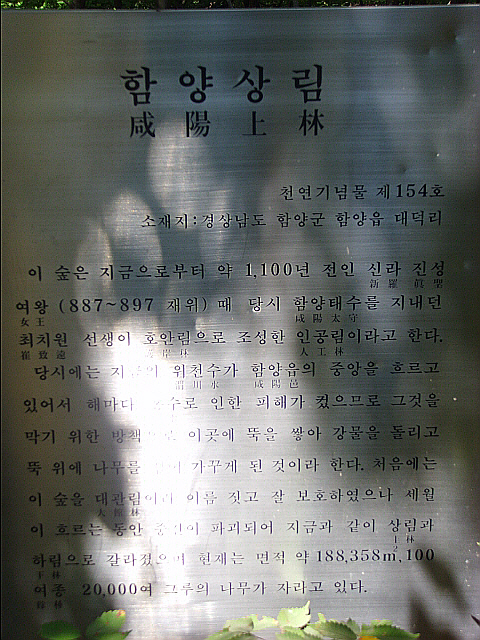 함양상림
咸陽上林
천연기념물 제154호
소재지:경상남도 함양군 함양읍 대덕리
이 숲은 지금으로부터 약 1,100년 전인 신라 진성
新羅 眞聖
여왕 (887~897 재위) 때 당시 함양태수를 지내던
女王 咸陽太守
최치원 선생이 호안림으로 조성한 인공림이라고 한다.
崔致遠 護岸林 人工林
당시에는 위천수가 함양읍의 중앙을 흐르고
渭川水 咸陽邑
있어서 해마다 홍수로 인한 피해가 컸으므로 그것을
막기 위한 방책으로 이곳에 둑을 쌓아 강물을 돌리고
둑 위에 나무를 가꾸게 된 것이라 한다. 처음에는
이 숲을 대관림이라 이름 짓고 잘 보호하였으나 세월
大館林
이 흐르는 동안 중간이 파괴되어 지금과 같이 상림과
上林
하림으로 갈라졌으며 현재는 면적 약 188,358㎡, 100
下林
여종 20,000여 그루의 나무가 자라고 있다.
餘種